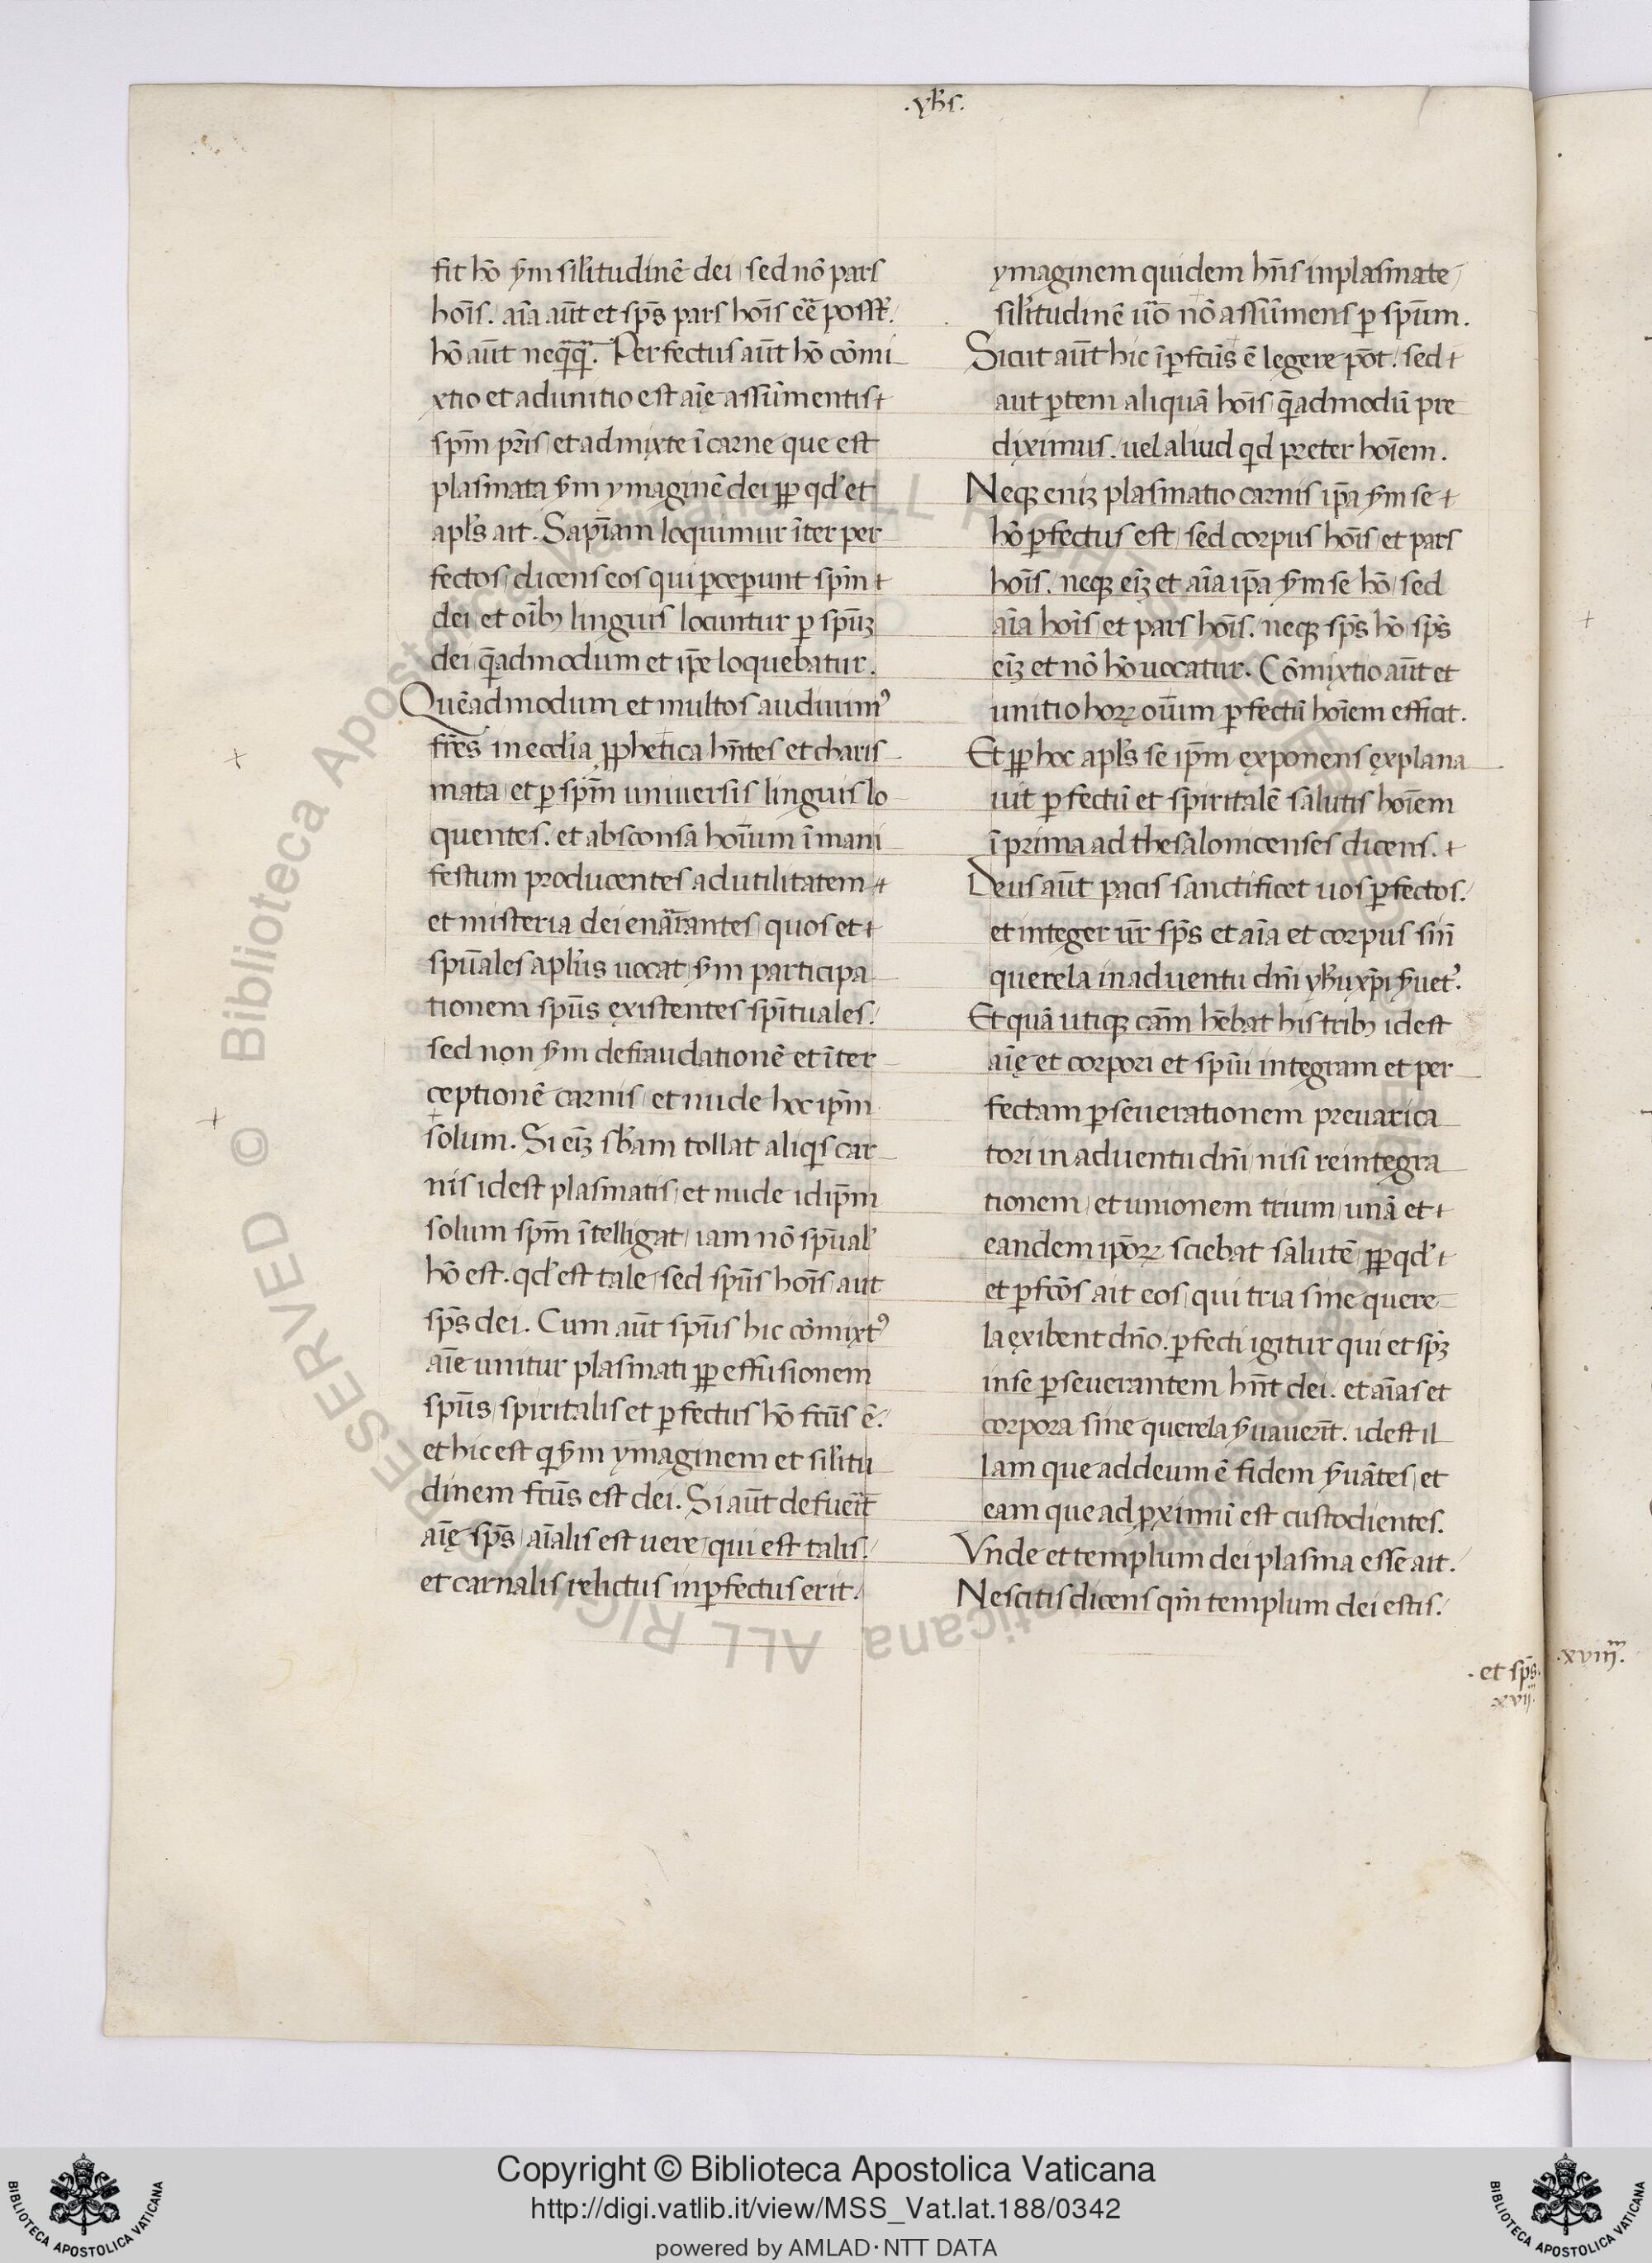 .yħs.
fit hō s̄m silitudinē dei sed nō pars
hoīs. aīa aūt et sp̄s pars hoīs eē possт̄.
hō aūt neq̄q̄. Perfectus aūt hō cōmi
xtio et adunitio est aīę assūmentis
sp̄m pr̄is et admixte ī carne que est
plasmata s̄m ymaginē dei ꝓp qd' et
apl's ait. Sapīam loquimur īter per
fectos dicens eos qui ꝑceꝑunt sp̄m
dei et oīb; linguis locuntur ꝑ spūꝫ
dei q̄admodum et ip̄e loquebatur.
Quēadmodum et multos audiuim9
fr̄es in eccl'ia ꝓphetica hn̄tes et charis
mata et ꝑ sp̄m uniuersis linguis lo
quentes. et absconsa hoīum ī mani
festum producentes ad utilitatem
et misteria dei enar̄antes quos et
spūales apl'us uocat s̄m participa
tionem spūs ęxistentes sp̄ituales.
sed non s̄m defraudationē et īter
ceptionē carnis et nude hoc ip̄m
solum. Si eīꝫ sb̄am tollat aliqis car
nis idest plasmatis et nude idip̄m
solum sp̄m ītelligat iam nō spūal'
hō est. qd' est tale sed spūs hoīs aut
sp̄s dei. Cum aūt spūs hic cōmixt9
aīe unitur plasmati ꝓp effusionem
spūs spiritalis et ꝑfectus hō fcūs ē.
et hic est qi s̄m ymaginem et silitu
dinem fcūs est dei. Si aūt defuerit̄
aīę sp̄s aīalis est uere qui est talis.
et carnalis relictus inꝑfectus erit.
ymaginem quidem hn̄s in plasmate
silitudinē ūo nō assūmens ꝑ spūm.
Sicut aūt hic īꝑfcūs ē legere pōt. sed
aut ꝑtem aliquā hoīs q̄admodū pre
diximus. uel aliud qid preter hoīem.
Neqꝫ eniꝫ plasmatio carnis ip̄a s̄m se
hō ꝑfectus est sed corpus hoīs et pars
hoīs. neqꝫ eīꝫ et aīa ip̄a s̄m se hō sed
aīa hoīs et pars hoīs. neqꝫ sp̄s hō sp̄s
eīꝫ et nō hō uocatur. Cōmixtio aūt et
unitio hoꝝ oīum ꝑfectū hoīem efficit.
Et ꝓp hoc apl's se ip̄m ęxponens ęxplana
uit ꝑfectū et spiritalē salutis hoīem
ī prima ad thesalonicenses dicens.
Deus aūt pacis sanctificet uos ꝑfectos.
et integer ūr sp̄s et aīa et corpus sin̄
querela in aduentu dn̄i yħu xp̄i s̄uet9.
Et quā utiqꝫ cām hēbat his trib; idest
aīę et corpori et spūi integram et per
fectam ꝑseuerationem preuarica
tori in aduentu dn̄i nisi reintegra
tionem et unionem trium unā et
eandem ip̄oꝝ sciebat salutē ꝓp qd'
et ꝑfcōs ait eos qui tria sine quere
la ęxibent dn̄o. ꝑfecti igitur qui et sp̄ꝫ
in se ꝑseuerantem hn̄t dei. et aīas et
corpora sine querela s̄uauerīt. idest il
lam que ad deum ē fidem s̄uātes et
eam que ad ꝓximū est custodientes.
Vnde et templum dei plasma esse ait.
Nescitis dicens qm̄ templum dei estis.
. et sp̄s.
xvij.
.xviiij.
Copyright © Biblioteca Apostolica Vaticana
http://digi.vatlib.it/view/MSS_Vat.lat.188/0342
powered by AMLAD·NTT DATA
BIBLIOTECA APOSTOLICA VATICANA
BIBLIOTECA APOSTOLICA VATICANA